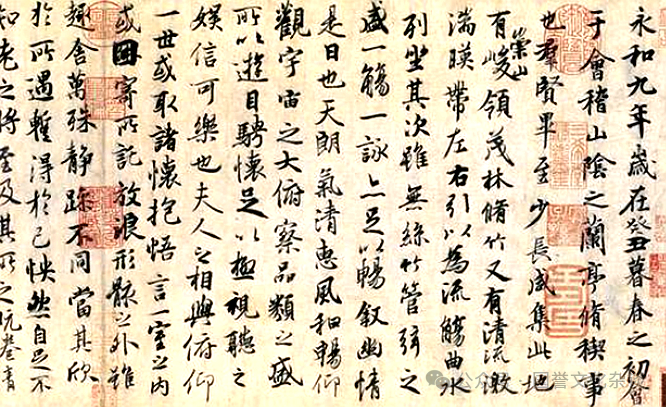 永和九年歲在癸丑暮春之初會
于會稽山陰之蘭亭脩稧事
也羣賢畢至少長咸集此地
有崇山峻領茂林脩竹又有清流激
湍暎帶左右引以為流觴曲水
列坐其次雖無絲竹管弦之
盛一觴一詠亦足以暢叙幽情
是日也天朗氣清惠風和暢仰
觀宇宙之大俯察品類之盛
所以遊目騁懷足以極視聽之
娛信可樂也夫人之相與俯仰
一世或取諸懷抱悟言一室之內
或因寄所託放浪形骸之外雖
趣舍萬殊靜躁不同當其欣
於所遇暫得於己怏然自足不
知老之將至及其所之既惓情
公众号 · 国誉文化